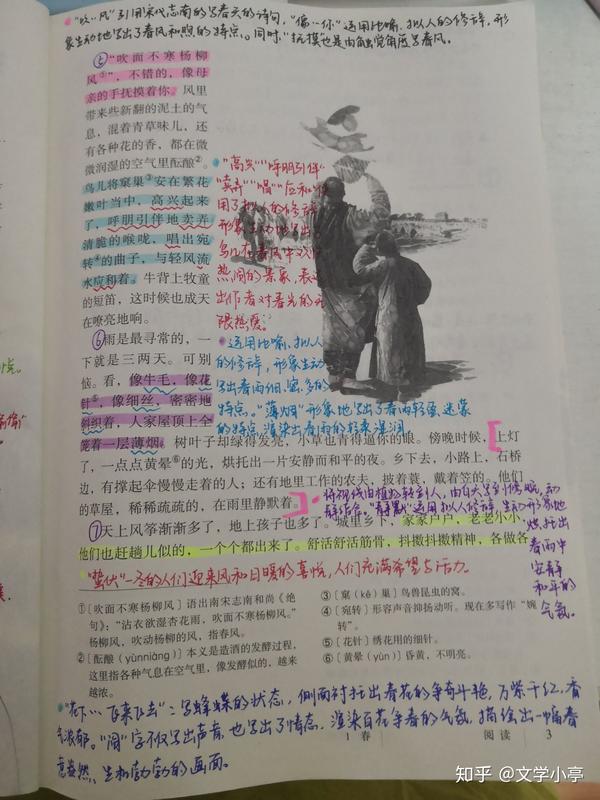 "吹…风"引用宋代志南的写春天的诗句，"像…你"运用比喻、拟人的修辞，形
象生动地写出了春风和煦的特点。同时，"抚摸也是由触觉角度写春风。
⑤"吹面不寒杨柳
风①"，不错的，像母
亲的手抚摸着你。风里
带来些新翻的泥土的气
息，混着青草味儿，还
有各种花的香，都在微
微润湿的空气里酝酿②。
鸟儿将窠巢③安在繁花
嫩叶当中，高兴起来
了，呼朋引伴地卖弄
清脆的喉咙，唱出宛
转④的曲子，与轻风流
水应和着。牛背上牧童
的短笛，这时候也成天
在嘹亮地响。
"高兴""呼朋引伴"
"卖弄""唱""应和"
用了拟人的修辞
形象生动地写出了
热闹的景象，表达
出作者对春光的无
限热爱。
⑥雨是最寻常的，一
下就是三两天。可别
恼。看，像牛毛，像花
针⑤，像细丝，密密地
斜织着，人家屋顶上全
笼着一层薄烟。树叶子却绿得发亮，小草也青得逼你的眼。傍晚时候，上灯
了，一点点黄晕⑥的光，烘托出一片安静而和平的夜。乡下去，小路上，石桥
边，有撑起伞慢慢走着的人；还有地里工作的农夫，披着蓑，戴着笠的。他们
的草屋，稀稀疏疏的，在雨里静默着。
运用比喻、拟人
的修辞，形象生动
写出春雨细、密、多的
特点。"薄烟"形象地写出了春雨轻盈、迷蒙
的特点，渲染出春雨的
⑦天上风筝渐渐多了，地上孩子也多了。城里乡下，家家户户，老老小小，
他们也赶趟儿似的，一个个都出来了。舒活舒活筋骨，抖擞抖擞精神，各做各
烘托出
春雨中
安静
和平的
气氛。
"蛰伏"一冬的人们迎来风和日暖的喜悦，人们充满希望与活力。
①〔吹面不寒杨柳风〕语出南宋志南和尚《绝
句》："沾衣欲湿杏花雨，吹面不寒杨柳风。"
杨柳风，吹动杨柳的风，指春风。
②〔酝酿（yùnniàng）〕本义是造酒的发酵过程，
这里指各种气息在空气里，像发酵似的，越来
越浓。
③〔窠（kē）巢〕鸟兽昆虫的窝。
④〔宛转〕形容声音抑扬动听。现在多写作"婉
转"。
⑤〔花针〕绣花用的细针。
⑥〔黄晕（yùn）〕昏黄，不明亮。
"花下…飞来飞去"：写蜂蝶的状态，侧面衬托出春花的争奇斗艳，万紫千红，香
气浓郁。"闹"字不仅写出声音，也写出了情态，渲染百花争春的气氛，描绘出一幅春
意盎然、生机勃勃的画面。
1 春 阅读 3
知乎 @文学小亭